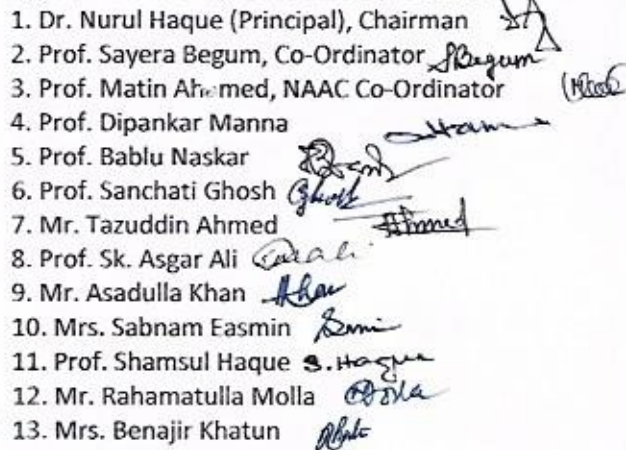 1. Dr. Nurul Haque (Principal), Chairman
2. Prof. Sayera Begum, Co-Ordinator SBegum
3. Prof. Matin Ahmed, NAAC Co-Ordinator
4. Prof. Dipankar Manna
5. Prof. Bablu Naskar
6. Prof. Sanchati Ghosh Ghosh
7. Mr. Tazuddin Ahmed Ahmed
8. Prof. Sk. Asgar Ali
9. Mr. Asadulla Khan Khan
10. Mrs. Sabnam Easmin
11. Prof. Shamsul Haque S. Haque
12. Mr. Rahamatulla Molla Molla
13. Mrs. Benajir Khatun